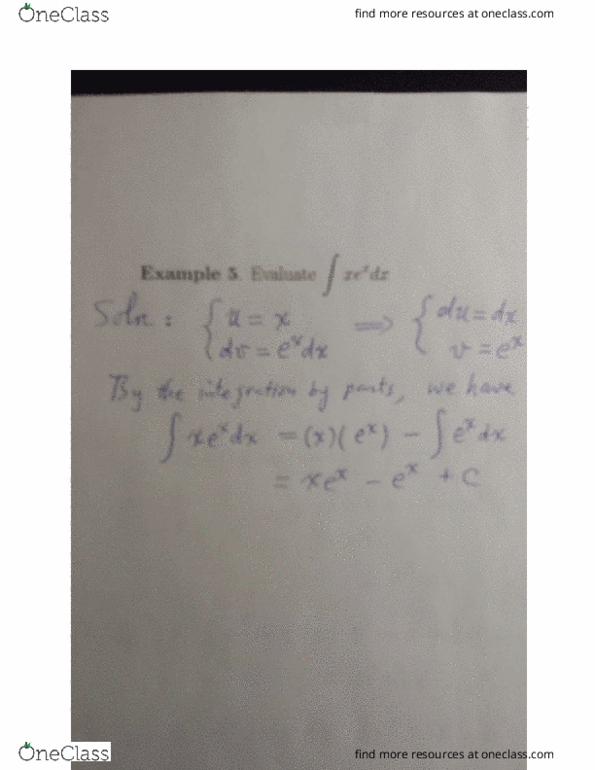 OneClass find more resources at oneclass.com
Example 5. Evaluate ∫ xeˣdx
Soln : { u = x ⟹ { du = dx
dv = eˣdx v = eˣ
By the integration by parts, we have
∫ xeˣdx = (x)(eˣ) − ∫ eˣdx
= xeˣ − eˣ + C
OneClass find more resources at oneclass.com